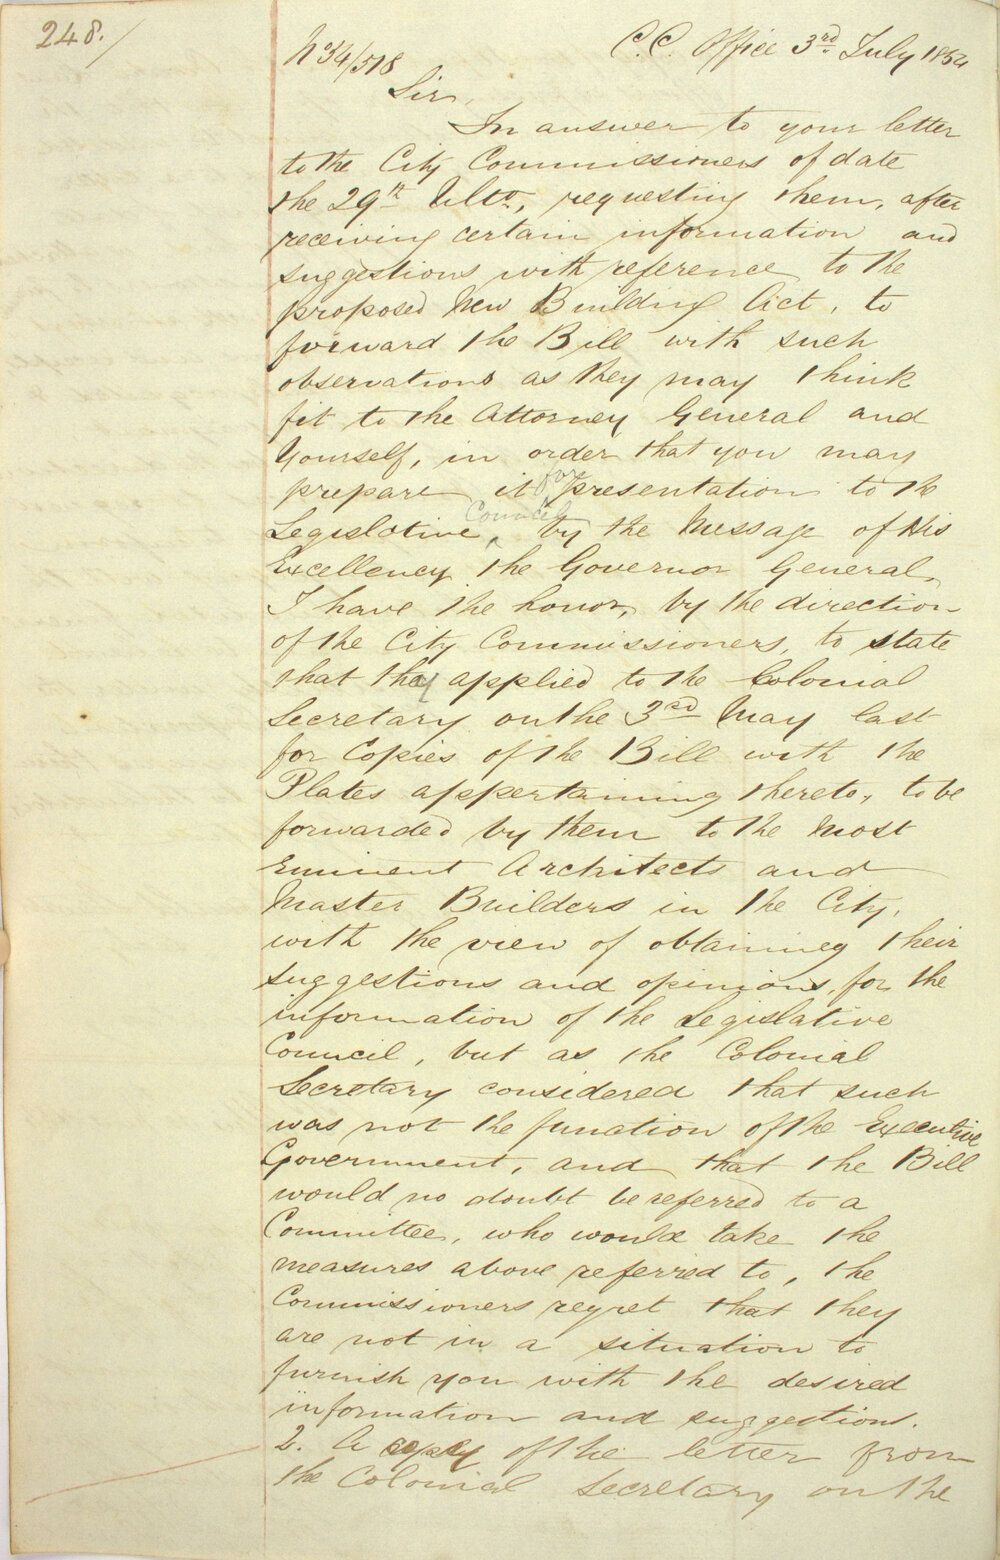 248.
No 34/518
C.C. Office 3rd July 1854
Sir,
In answer to your letter
to the City Commissioners of date
the 29th Ulto, requesting them, after
receiving certain information and
suggestions with reference to the
proposed New Building Act, to
forward the Bill with such
observations as they may think
fit to the Attorney General and
Yourself, in order that you may
prepare it for presentation to the
Legislative Council, by the Message of His
Excellency the Governor General,
I have the honor, by the direction
of the City Commissioners, to state
that they applied to the Colonial
Secretary on the 3rd May last
for Copies of the Bill with the
Plates appertaining thereto, to be
forwarded by them to the most
eminent Architects and
Master Builders in the City,
with the view of obtaining their
suggestions and opinions, for the
information of the Legislative
Council, but as the Colonial
Secretary considered that such
was not the function of the Executive
Government, and that the Bill
would no doubt be referred to a
Committee, who would take the
measures above referred to, the
Commissioners regret that they
are not in a situation to
furnish you with the desired
information and suggestions.
2. A copy of the letter from
the Colonial Secretary on the